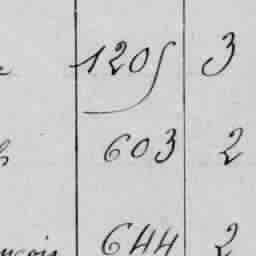 1205 3
603 2
644 2